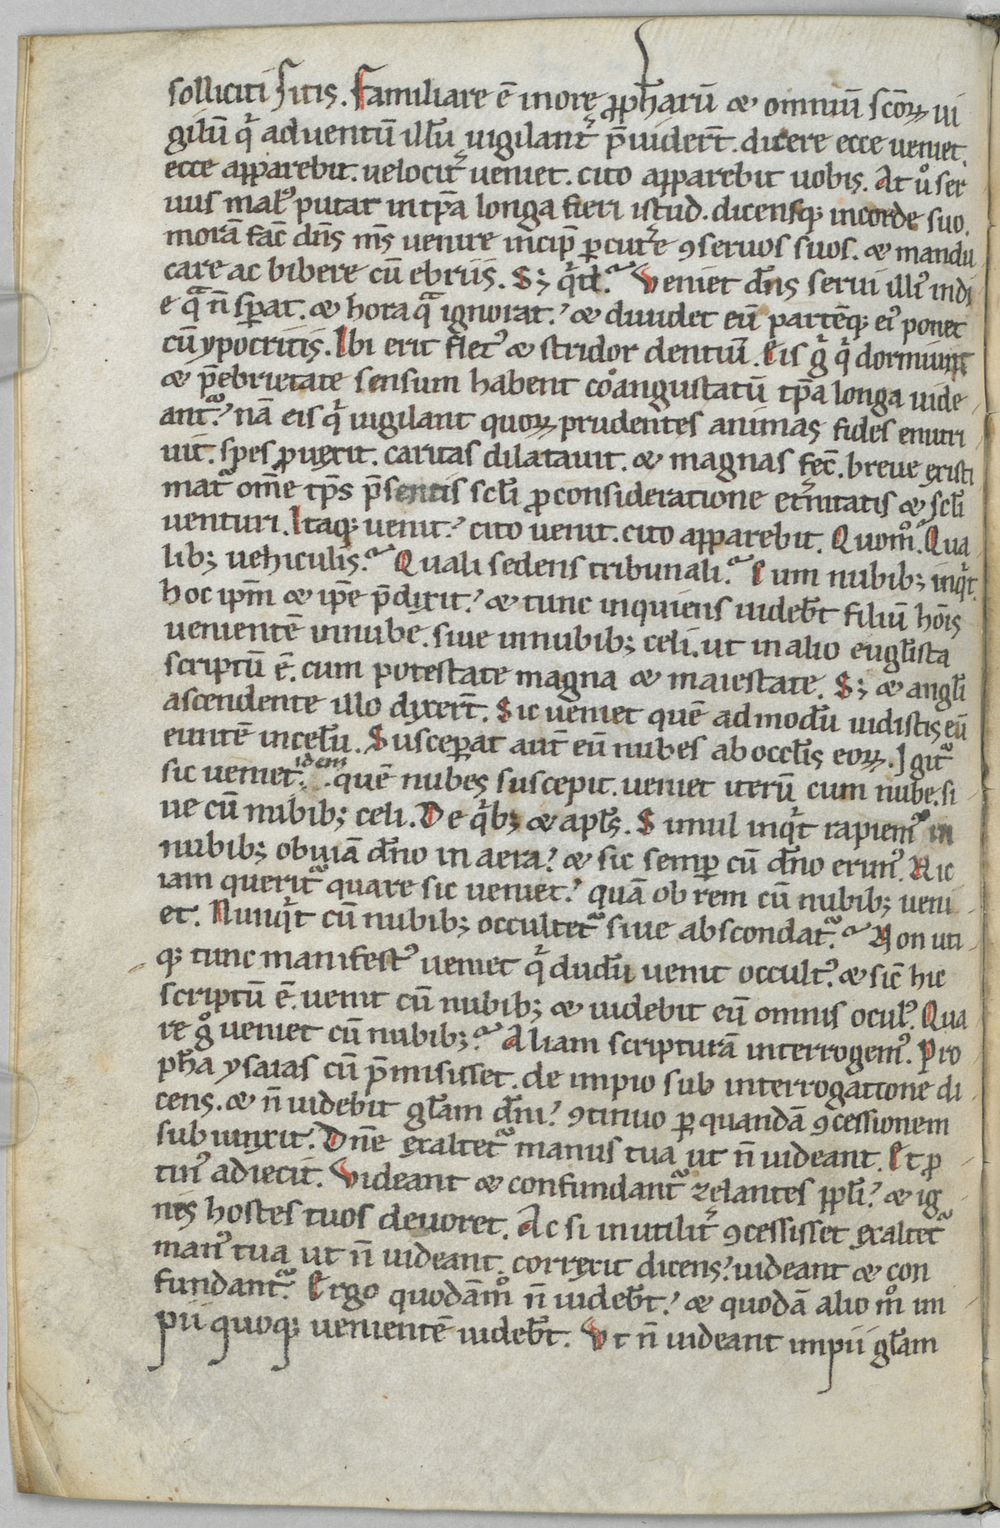 solliciti sitis. Familiare ē in ore ꝓph̄arū ⁊ omniū sc̄oꝝ ui
gilū qͥ aduentū illū uigilant̾ p̄uider̄t. dicere ecce ueniet.
ecce apparebit. uelocit̾ ueniet. cito apparebit uobis. At uͦ ser
uus malꝰ putat in tp̄a longa fieri istud. dicensqꝫ in corde suo.
morā fac̄ dn̄s ms̄ uenire incip̄ ꝑcut̾e ꝯseruos suos. ⁊ mandu
care ac bibere cū ebriis. Sꝫ qͥd? Veniet dn̄s serui illiꝰ in di
e qᵃ n̄ sꝑat. ⁊ hora qᵃ ignorat. ⁊ diuidet eū partēqꝫ eiꝰ ponet
cū ypocritis. Ibi erit fletꝰ ⁊ stridor dentiū. Eis gͥ qͥ dormiunt
⁊ p̄ ebrietate sensum habent coangustatū tp̄a longa uide
antᷣ. nā eis qͥ uigilant quoꝝ prudentes animas fides enutri
uit. spes ꝓuexit. caritas dilatauit. ⁊ magnas fec̄. breue existi
matᷣ om̄e tp̄s p̄sentis scl̄i ꝓ consideratione et̾nitatis ⁊ scl̄i
uenturi. Itaqꝫ uenit. cito uenit. cito apparebit. Quom̊. Qua
libꝫ uehiculis? Quali sedens tribunali? Cum nubibꝫ inqͥt.
hoc ip̄m ⁊ ip̄e p̄dixit. ⁊ tunc inquiens uideb̄t filiū hōis
uenientē in nube. siue in nubibꝫ celi. ut in alio eugl̄ista
scriptū ē. cum potestate magna ⁊ maiestate. Sꝫ ⁊ angl̄i
ascendente illo dixer̄t. Sic ueniet quē admodū uidistis eū
euntē in cel̄u. Susceꝑat aut̄ eū nubes ab occl̄is eoꝝ. Igitᷣ
sic ueniet. idem quē nubes suscepit. ueniet iterū cum nube. si
ue cū nubibꝫ celi. De qͥbꝫ ⁊ apl̄s. Simul inqͥt rapiemꝰ in
nubibꝫ obuiā dn̄o in aera. ⁊ sic semꝑ cū dn̄o erimꝰ. Hic
iam queritᷣ quare sic ueniet. quā ob rem cū nubibꝫ ueni
et. Nunqͥt cū nubibꝫ occultetᷣ siue abscondatᷣ? Non uti
qꝫ tunc manifestꝰ ueniet qͥ dudū uenit occultꝰ. ⁊ sic̄ hic
scriptū ē. uenit cū nubibꝫ ⁊ uidebit eū omnis oculꝰ. Qua
re gͦ ueniet cū nubibꝫ? Aliam scripturā interrogemꝰ. Pro
ph̄a ysaias cū p̄misisset. de impio sub interrogatione di
cens. ⁊ n̄ uidebit gl̄am dn̄i. ꝯtinuo ꝑ quandā ꝯcessionem
subiunxit. Dn̄e exaltetᷣ manus tua ut n̄ uideant. Et ꝓ
tinꝰ adiecit. Videant ⁊ confundantᷣ zelantes ppl̄i. ⁊ ig
nes hostes tuos deuoret. Ac si inutilit̾ ꝯcessisset exaltetᷣ
manꝰ tua ut n̄ uideant. correxit dicens. uideant ⁊ con
fundantᷣ. Ergo quodām̊ n̄ uideb̄t. ⁊ quodā alio m̊ im
pii quoqꝫ uenientē uideb̄t. Vt n̄ uideant impii gl̄am